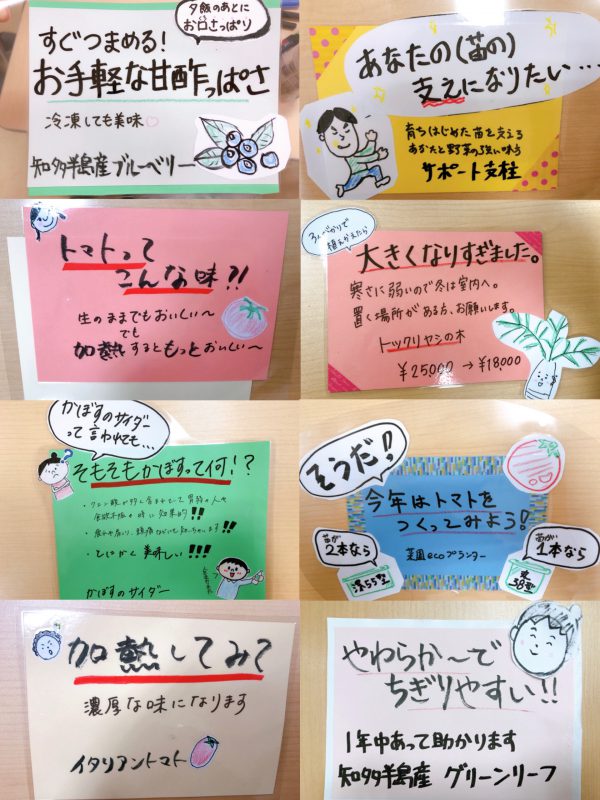 夕飯のあとに
お口さっぱり
すぐつまめる!
お手軽な甘酢っぱさ
冷凍しても美味♡
知多半島産ブルーベリー
あなたの(苗の)
支えになりたい…
育ちはじめた苗を支える
あなたと野菜の強い味方
サポート支柱
トマトって
こんな味?!
生のままでもおいしい〜
でも
加熱するともっとおいしい〜
3人がかりで
植えかえたら
大きくなりすぎました。
寒さに弱いので冬は室内へ。
置く場所がある方、お願いします。
トックリヤシの木
¥25,000→¥18,000
かぼすのサイダー
って言われても…
そもそもかぼすって何!?
・クエン酸が多く含まれていて
食欲不振の時に効果的!!
・とにかく美味しい!!!
かぼすのサイダー
そうだ!
今年はトマトを
つくってみよう!
菜園ecoプランター
苗が
2本なら
深55型
苗が
1本なら
丸38型
加熱してみて
濃厚な味になります
イタリアントマト
やわらか〜で
ちぎりやすい!!
1年中あって助かります
知多半島産 グリーンリーフ